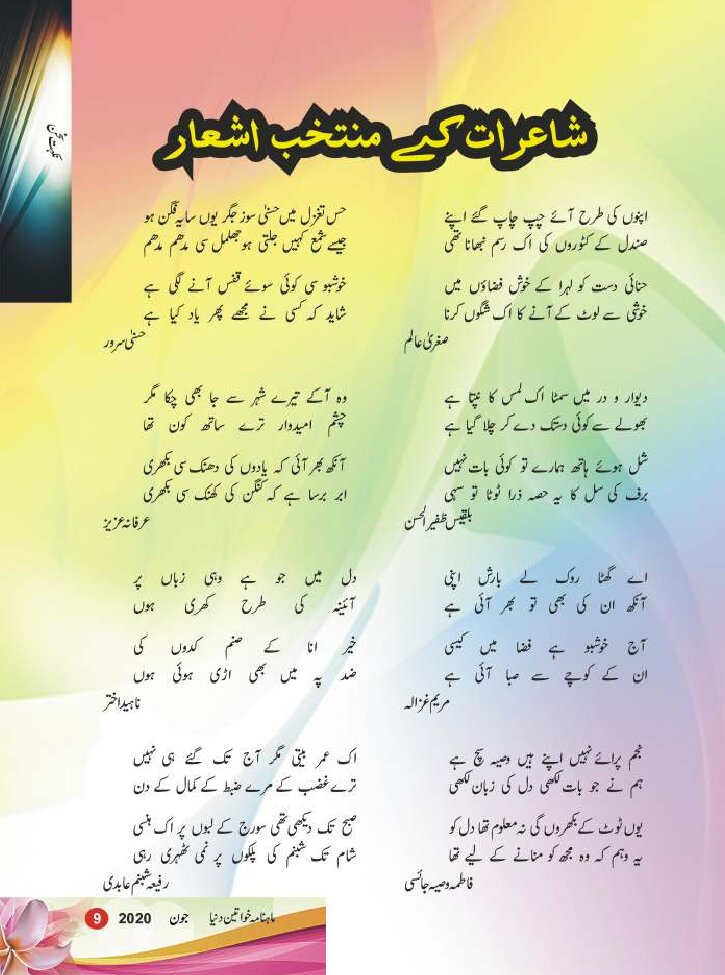 نکہت سخن
شاعرات کے منتخب اشعار
اپنوں کی طرح آئے چپ چاپ گئے اپنے
صندل کے کٹوروں کی اک رسم نبھانا تھی
حنائی دست کو لہرا کے خوش فضاؤں میں
خوشی سے لوٹ کے آنے کا اک شگوں کرنا
صغریٰ عالم
دیوار و در میں سمٹا اک لمس کانپتا ہے
بھولے سے کوئی دستک دے کر چلا گیا ہے
شل ہوئے ہاتھ ہمارے تو کوئی بات نہیں
برف کی سل کا یہ حصہ ذرا ٹوٹا تو سہی
بلقیس ظفیر الحسن
اے گھٹا روک لے بارش اپنی
آنکھ ان کی بھی تو بھر آئی ہے
آج خوشبو ہے فضا میں کیسی
ان کے کوچے سے صبا آئی ہے
مریم غزالہ
نجم پرائے نہیں اپنے ہیں وصیہ سچ ہے
ہم نے جو بات لکھی دل کی زبان لکھی
یوں ٹوٹ کے بکھروں گی نہ معلوم تھا دل کو
یہ وہم کہ وہ مجھ کو منانے کے لیے تھا
فاطمہ وصیہ جائسی
حسن تغزل میں حسنیٰ سوز جگر یوں سایہ فگن ہو
جیسے شمع کہیں جلتی ہو جھلمل سی مدھم مدھم
خوشبو سی کوئی سوئے قفس آنے لگی ہے
شاید کہ کسی نے مجھے پھر یاد کیا ہے
حسنیٰ سرور
وہ آکے تیرے شہر سے جا بھی چکا مگر
چشم امیدوار ترے ساتھ کون تھا
آنکھ بھر آئی کہ یادوں کی دھنک سی بکھری
ابر برسا ہے کہ کنگن کی کھنک سی بکھری
عرفانہ عزیز
دل میں جو ہے وہی زباں پر
آئینہ کی طرح کھری ہوں
خیر انا کے صنم کدوں کی
ضد پہ میں بھی اڑی ہوئی ہوں
ناہید اختر
اک عمر بیتی مگر آج تک گئے ہی نہیں
ترے غضب کے مرے ضبط کے کمال کے دن
صبح تک دیکھی تھی سورج کے لبوں پر اک ہنسی
شام تک شبنم کی پلکوں پر نمی ٹھہری رہی
رفیعہ شبنم عابدی
ماہنامہ خواتین دنیا جون 2020 9